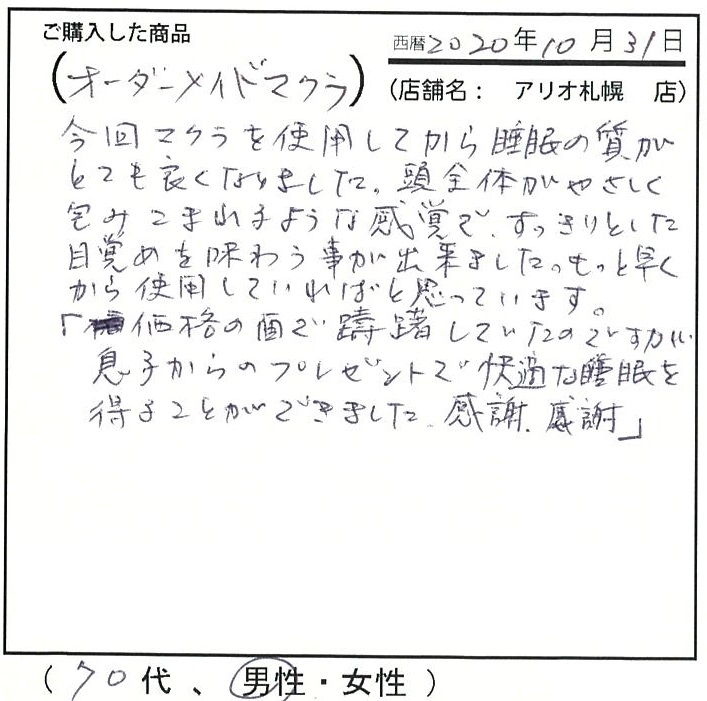 ご購入した商品
西暦2020年10月31日
(オーダーメイドマクラ)
(店舗名: アリオ札幌 店)
今回マクラを使用してから睡眠の質が
とても良くなりました。頭全体がやさしく
包みこまれるような感覚で、すっきりとした
目覚めを味わう事が出来ました。もっと早く
から使用していればと思っています。
「価格の面で躊躇していたのですが
息子からのプレゼントで快適な睡眠を
得ることができました。感謝、感謝」
(70代、男性・女性)